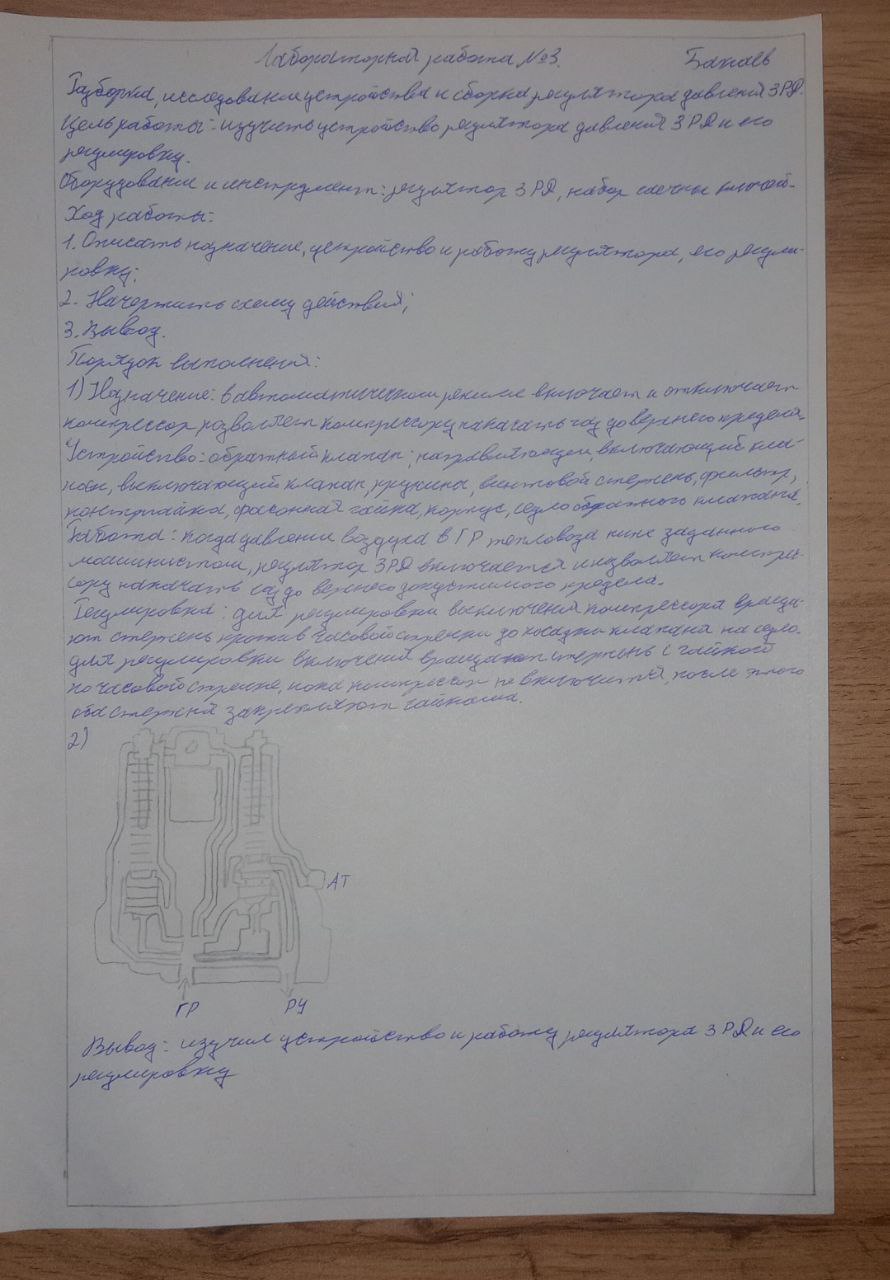 Лабораторная работа №3. Бакаев
Разборка, исследование устройства и сборка регулятора давления 3РД.
Цель работы: изучить устройство регулятора давления 3РД и его
регулировку.
Оборудование и инструмент: регулятор 3РД, набор гаечных ключей.
Ход работы:
1. Описать назначение, устройство и работу регулятора, его регули-
ровку;
2. Начертить схему действия;
3. Вывод.
Порядок выполнения:
1) Назначение: в автоматическом режиме включает и отключает
компрессор позволяет компрессору накачать ГР до верхнего предела.
Устройство: обратный клапан; направляющей, включающий кла-
пан, выключающий клапан, пружины, винтовой стержень, фильтр,
контргайка, фасонная гайка, корпус, седло обратного клапана.
Работа: когда давлении воздуха в ГР тепловоза ниже заданного
машинистом, регулятор 3РД включается и позволяет компрес-
сору накачать ГР до верхнего допустимого предела.
Регулировка: для регулировки выключения компрессора враща-
ют стержень против часовой стрелки до посадки клапана на седло.
для регулировки включения вращают стержень с гайкой
по часовой стрелке, пока компрессор не включится, после этого
оба стержня закрепляют гайками.
2)
АТ
ГР РУ
Вывод: изучил устройство и работу регулятора 3РД и его
регулировку